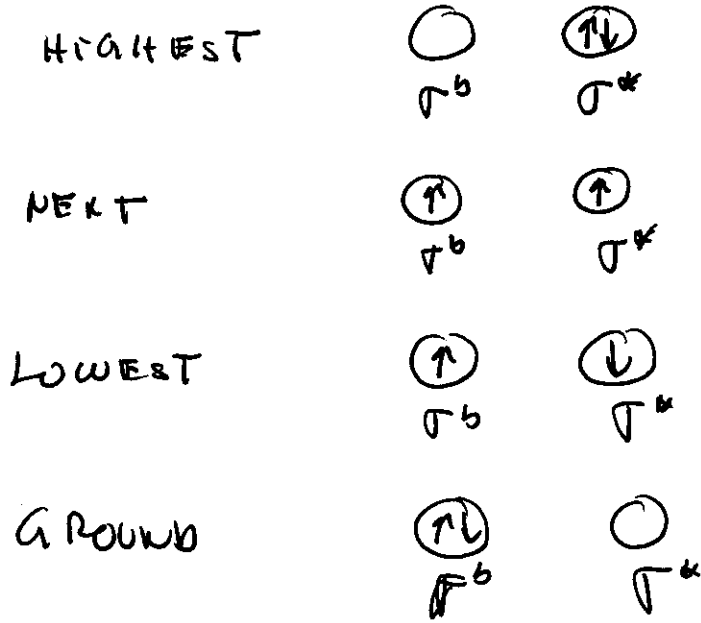 HIGHEST ↑↓
σᵇ σ*
NEXT ↑ ↑
σᵇ σ*
LOWEST ↑ ↓
σᵇ σ*
GROUND ↑↓
σᵇ σ*